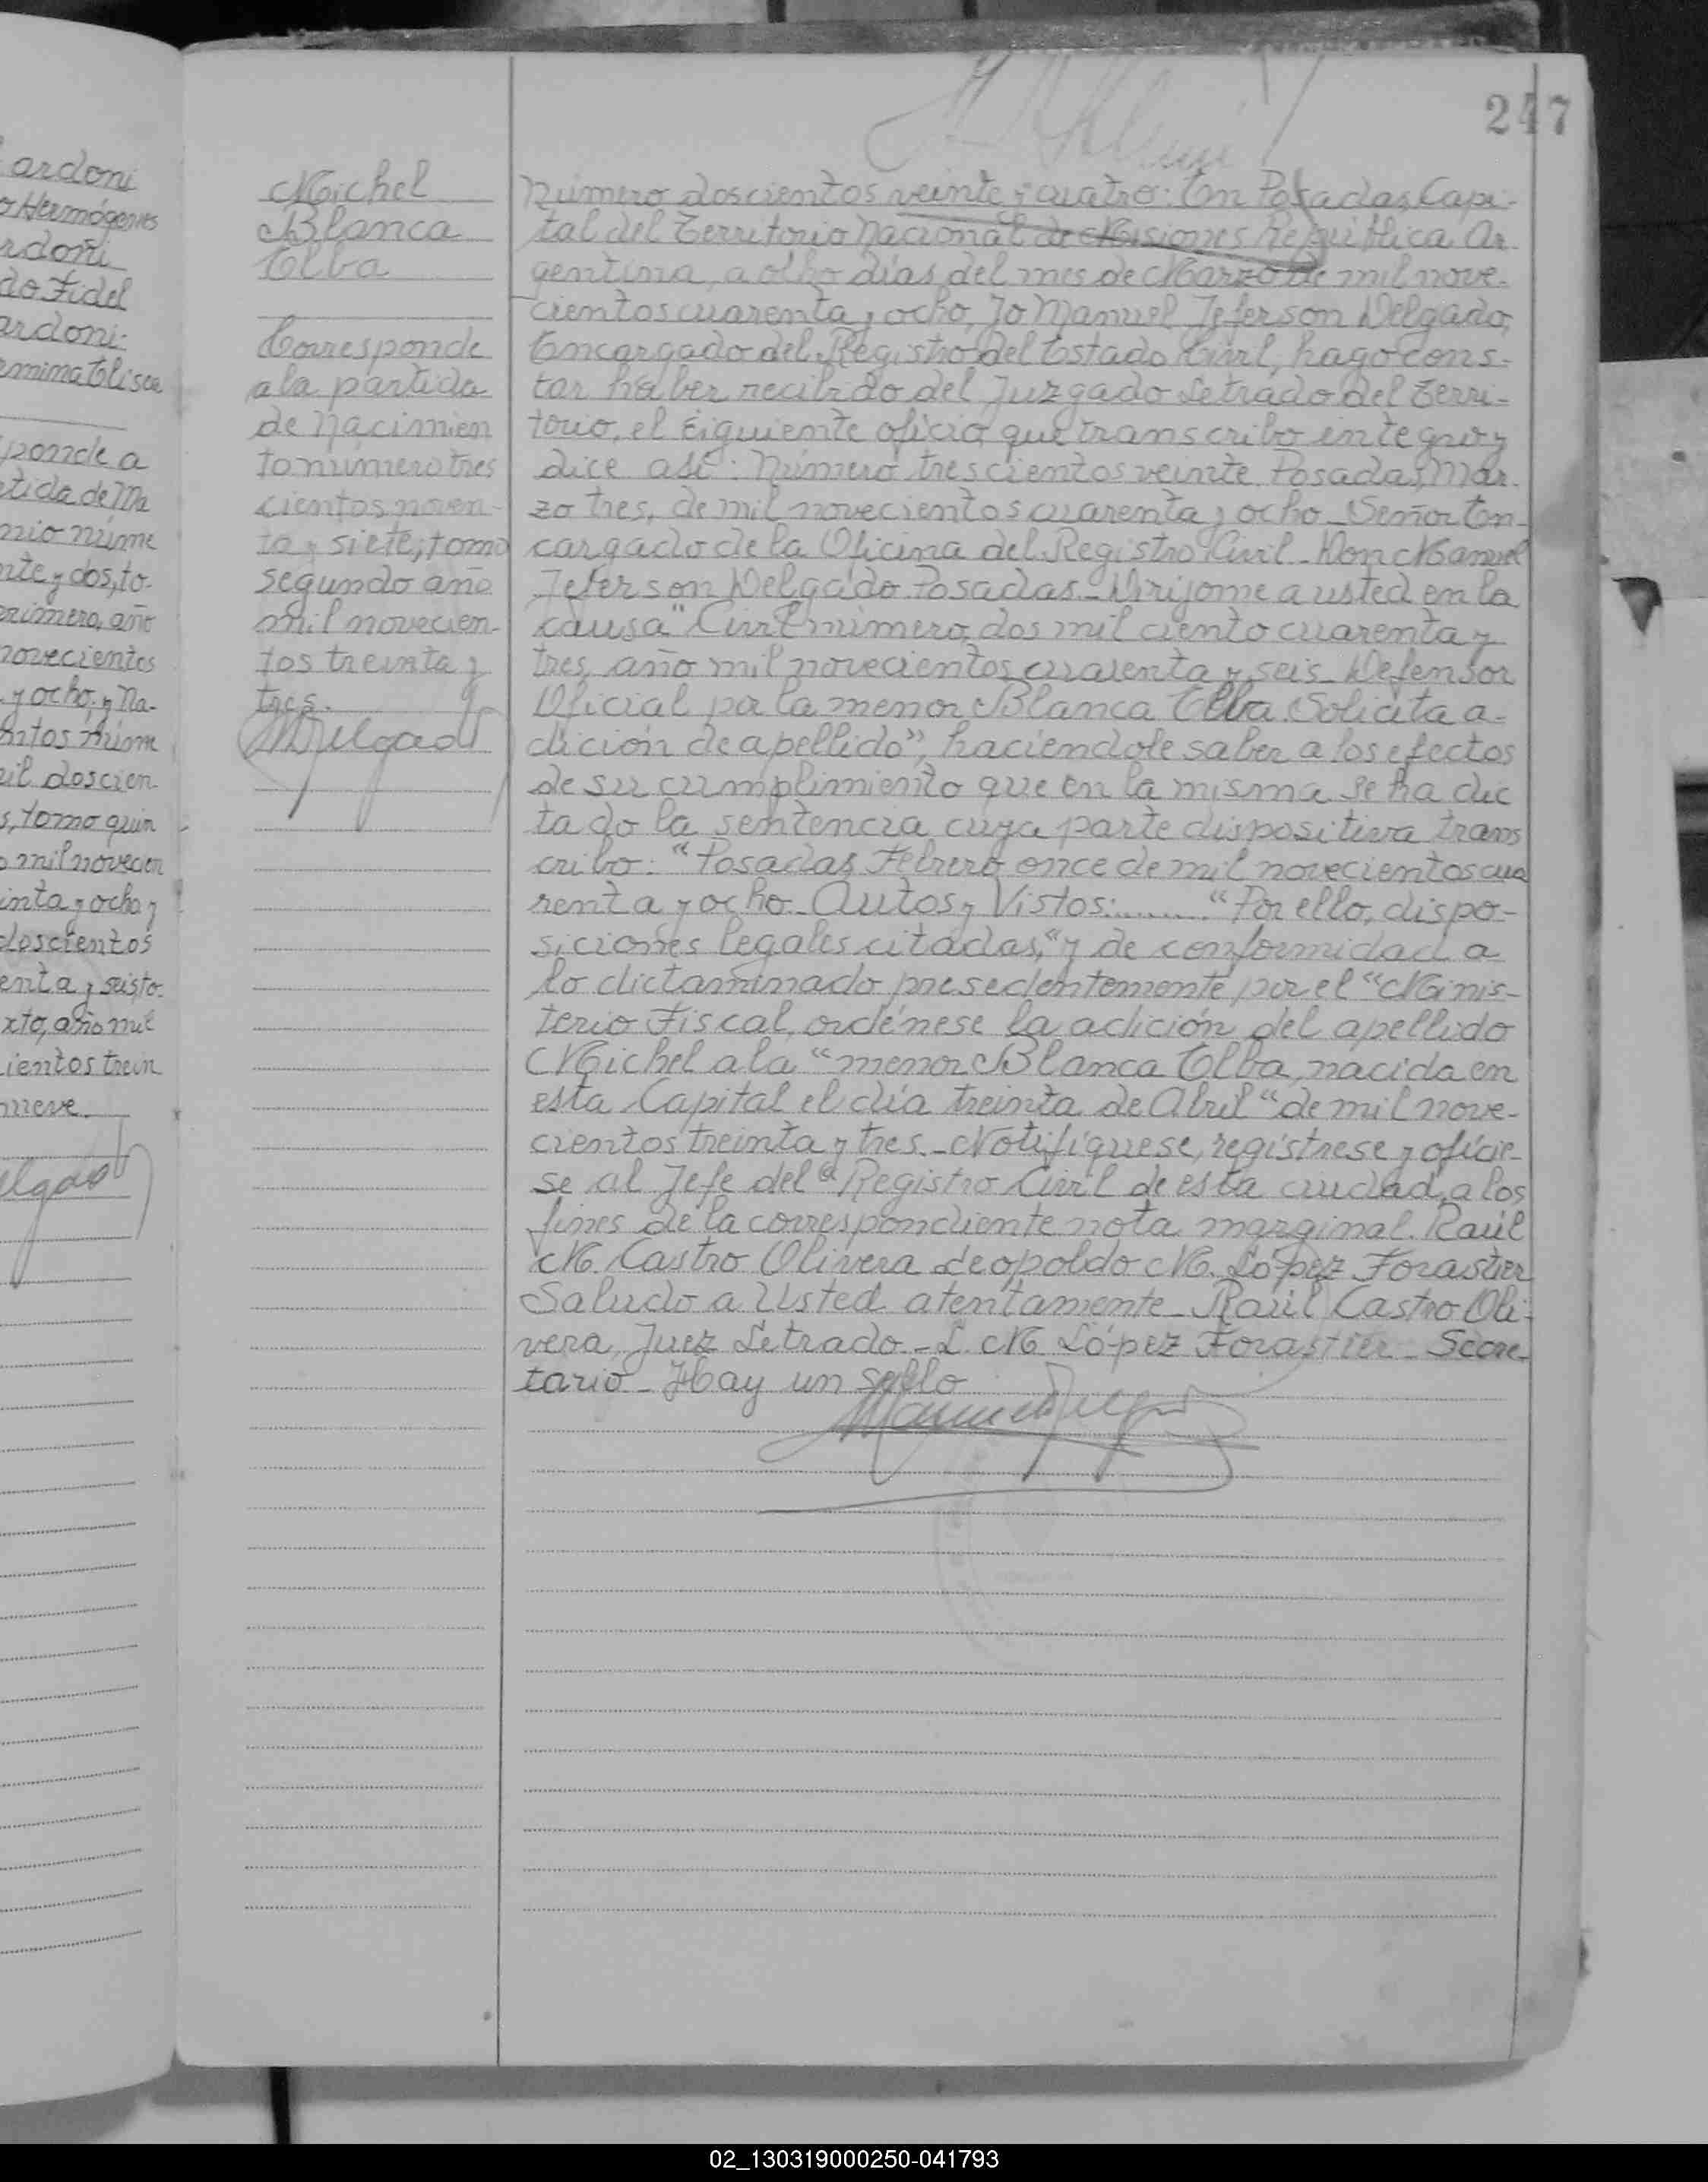 247
ardoni
o Hermógenes
rdoni
do Fidel
ardoni.
ermina Elisea
ponde a
tida de Ma
nio núme
nte y dos, to-
primero, año
novecientos
y ocho, y Na-
ntos núme
il doscien-
s, tomo quin
o mil novecien
inta y ocho y
doscientos
enta y
xto, año mil
ientos trein
nueve.
elgado
Michel
Blanca
Elba
Corresponde
a la partida
de Nacimien
to número tres
cientos noven-
ta y siete; tomo
segundo año
mil novecien-
tos treinta y
tres.
MDelgado
Número doscientos veinte y cuatro: En Posadas, Capi-
tal del Territorio Nacional de Misiones República Ar-
gentina, a ocho días del mes de Marzo de mil nove-
cientos cuarenta y ocho, Jo Manuel Jeferson Delgado,
Encargado del Registro del Estado Civil, hago cons-
tar haber recibido del Juzgado Letrado del Terri-
torio, el siguiente oficio que transcribo integro y
dice así: Número trescientos veinte. Posadas, Mar-
zo tres, de mil novecientos cuarenta y ocho _ Señor En-
cargado de la Oficina del Registro Civil _ Don Manuel
Jeferson Delgado. Posadas. _ Dirijome a usted en la
causa "Civil número, dos mil ciento cuarenta y
tres, año mil novecientos cuarenta y seis _ Defensor
Oficial por la menor Blanca Elba. Solicita a-
dición de apellido", haciendole saber a los efectos
de su cumplimiento que en la misma se ha dic
tado la sentencia cuya parte dispositiva trans
cribo: "Posadas, Febrero once de mil novecientos cua
renta y ocho _ Autos y Vistos:......... "Por ello, dispo-
siciones legales citadas, "y de conformidad a
lo dictaminado presedentemente por el "Minis-
terio Fiscal, ordénese la adición del apellido
Michel a la "menor Blanca Elba, nacida en
esta Capital el día treinta de Abril "de mil nove-
cientos treinta y tres. _ Notifíquese, regístrese y ofície-
se al Jefe del "Registro Civil de esta ciudad, a los
fines de la correspondiente nota marginal. Raúl
M. Castro Olivera Leopoldo M. López Forastier
Saludo a Usted atentamente _ Raúl Castro Oli-
vera, Juez Letrado _ L. M López Forastier _ Secre-
tario _ Hay un sello
02_130319000250-041793